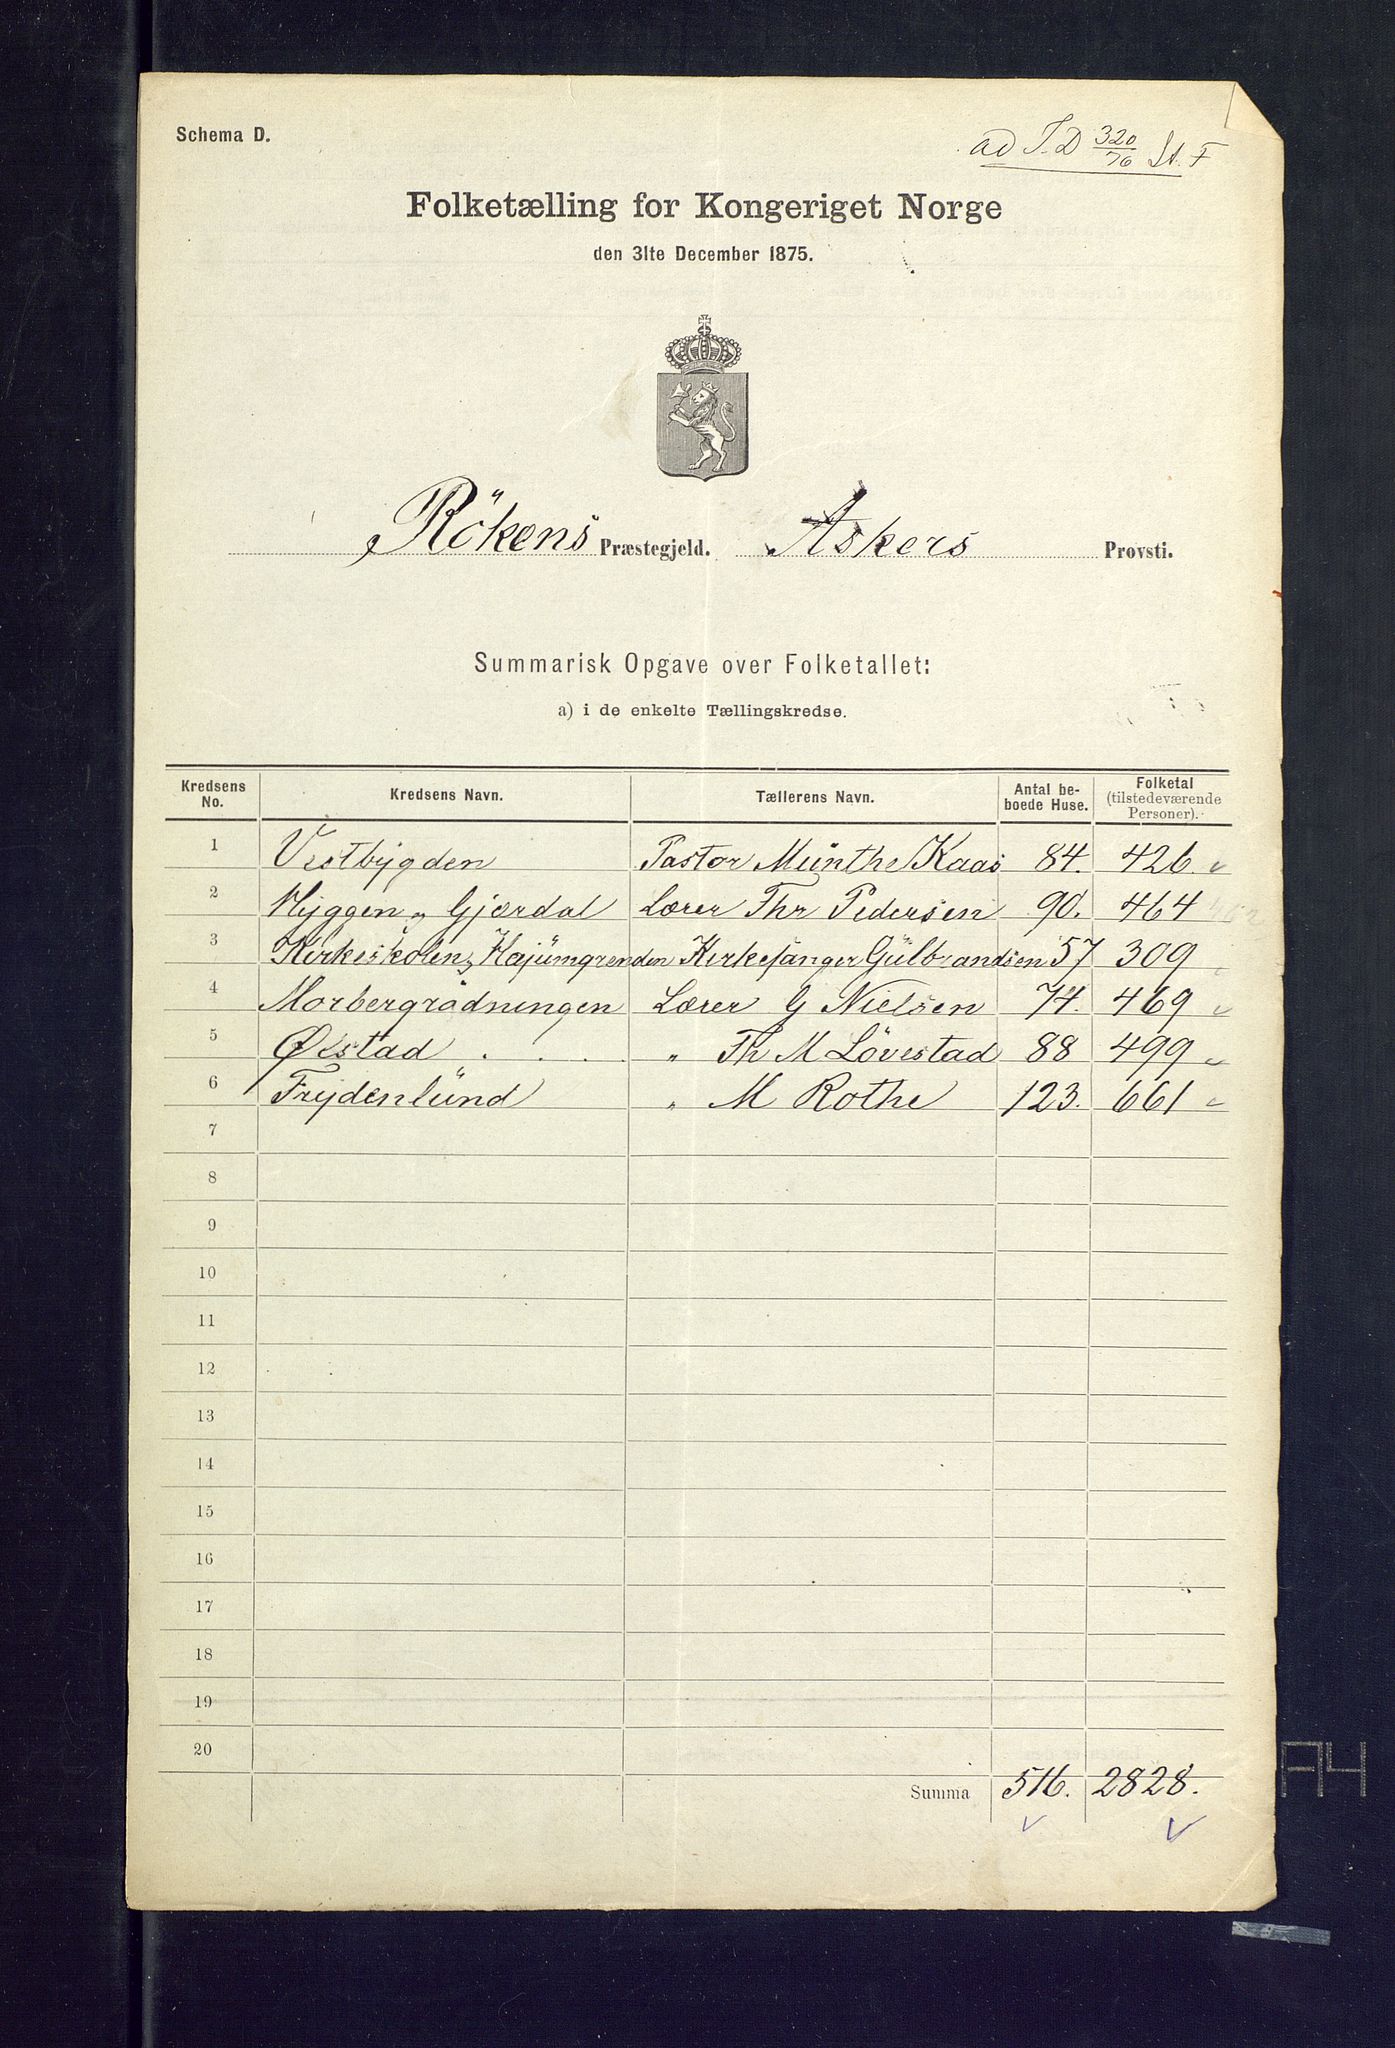 Schema D.
ad J.D 320/76 St. F
Folketælling for Kongeriget Norge
den 31te December 1875.
Rökens Præstegjeld. Askers Provsti.
Summarisk Opgave over Folketallet:
a) i de enkelte Tællingskredse.
Kredsens No. Kredsens Navn. Tællerens Navn. Antal beboede Huse. Folketal (tilstedeværende Personer).
1 Vestbygden Pastor Münthe Kaas 84. 426
2 Hyggen og Gjærdal Lærer Thr Pedersen 90. 464
3 Kirkeskolen og Højümgrenden Kirkesanger Gülbrandsen 57 309
4 Morbergrodningen Lærer G Nielsen 74. 469
5 Østad . . . . „ Th M Lövestad 88 499
6 Frydenlünd „ M Rothe 123. 661
7
8
9
10
11
12
13
14
15
16
17
18
19
20
Summa 516. 2828.
A4